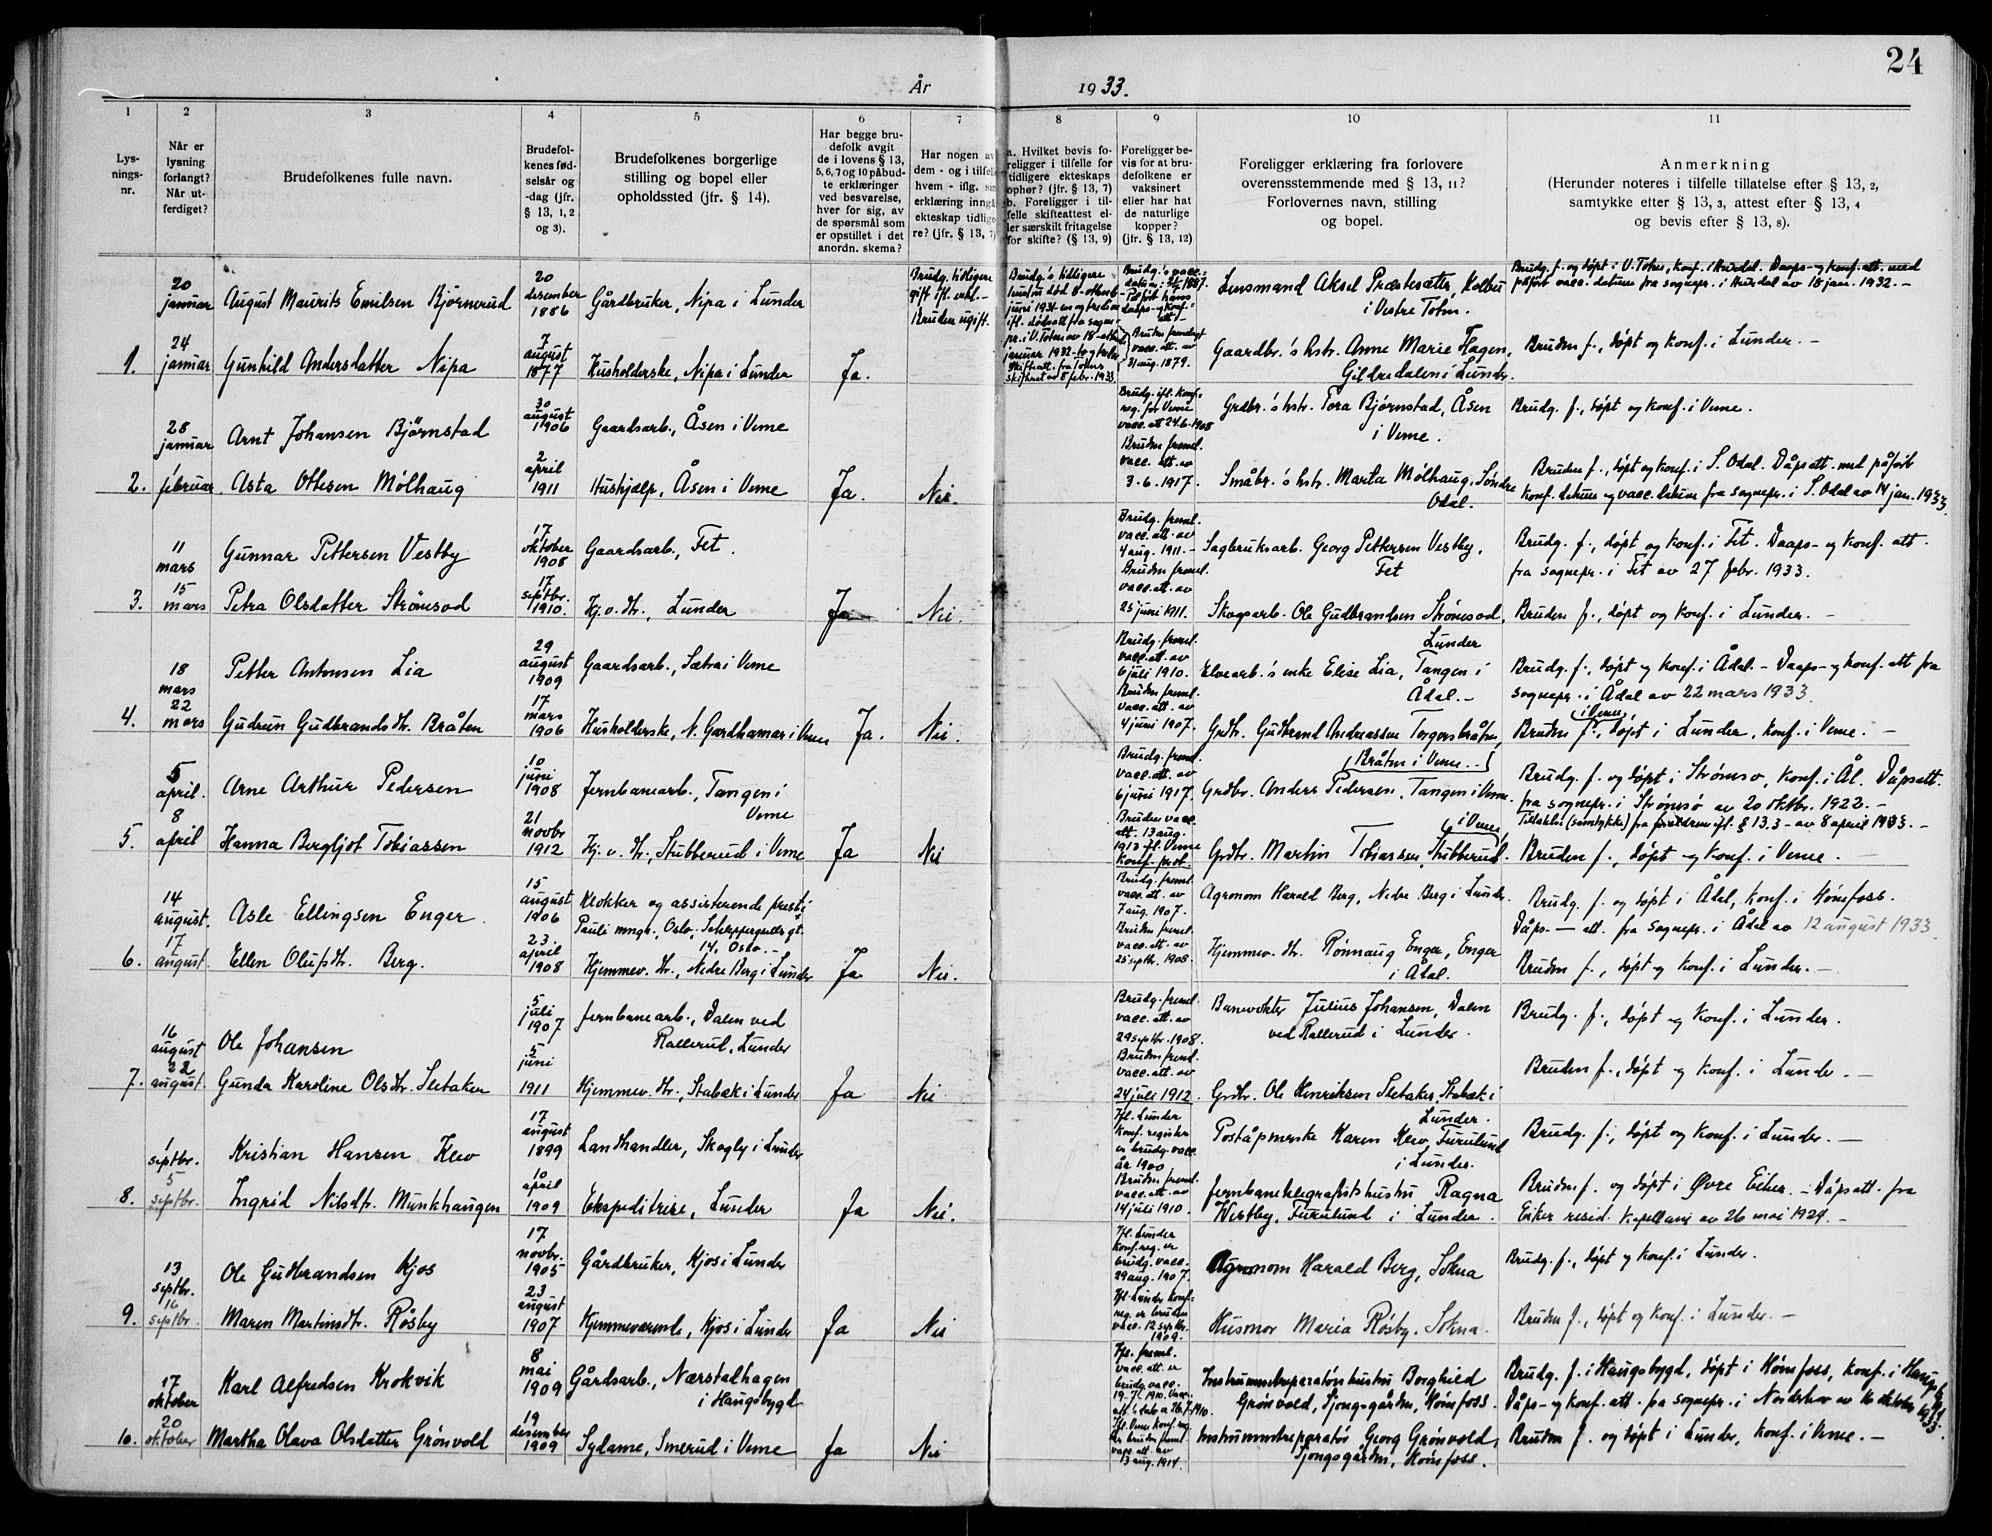 24
År 1933.
1
2
3
4
5
6
7
8
9
10
11
Lys-
nings-
nr.
Når er
lysning
forlangt?
Når ut-
ferdiget?
Brudefolkenes fulle navn.
Brudefol-
kenes fød-
selsår og
-dag (jfr.
§ 13, 1, 2
og 3).
Brudefolkenes borgerlige
stilling og bopel eller
opholdssted (jfr. § 14).
Har begge bru-
defolk avgit
de i lovens § 13,
5, 6, 7 og 10 påbud-
te erklæringer
ved besvarelse,
hver for sig, av
de spørsmål som
er opstillet i det
anordn. skema?
Har nogen av
dem - og i tilfelle
hvem - iflg. sin
erklæring inngå
ekteskap tidlige-
re? (jfr. § 13, 7)
a. Hvilket bevis fo-
religger i tilfelle for
tidligere ekteskaps
ophør? (jfr. § 13, 7)
b. Foreligger i til-
felle skifteattest el-
ler særskilt fritagelse
for skifte? (§ 13, 9)
Foreligger be-
vis for at bru-
defolkene er
vaksinert
eller har hat
de naturlige
kopper?
(jfr. § 13, 12)
Foreligger erklæring fra forlovere
overensstemmende med § 13, 11?
Forlovernes navn, stilling
og bopel.
Anmerkning
(Herunder noteres i tilfelle tillatelse efter § 13, 2,
samtykke efter § 13, 3, attest efter § 13, 4
og bevis efter § 13, 8).
20
januar
August Maurits Emilsen Bjørnerud
20
desember
1886
Gårdbruker, Nipa i Lunder
Brudg. tidligere
gift ifl. erkl. -
Bruden ugift.
Brudg.'s tidligere
Lensmand Aksel Prætesætter, Kolbu
i Vestre Toten.
Brudg. f. og døpt i V. Toten, konf. i Hurdal. Daaps- og konf. att. med
påført vacc. datum fra sognepr. i Hurdal av 18 jan. 1932. -
1.
24
januar
Gunhild Andersdatter Nipa
7
august
1877
Husholderske, Nipa i Lunder
Ja.
Bruden fremlagt
vacc. att. av
31 aug. 1879.
Gaardbr.'s hstr. Anne Marie Hagen,
Gildredalen i Lunder.
Bruden f., døpt og konf. i Lunder. -
28
januar
Arnt Johansen Bjørnstad
30
august
1906
Gaardsarb., Åsen i Veme
Brudg. ifl. konf.
reg. for Veme
vacc. att 24.6.1908
Grdbr.'s hstr. Tora Bjørnstad, Åsen
i Veme.
Brudg. f., døpt og konf. i Veme.
2.
februar
Asta Ottesen Mölhaug
2
april
1911
Hushjælp, Åsen i Veme
Ja.
Nei.
Bruden freml.
vacc. att. av
3.6.1917.
Småbr.'s hstr. Marta Mölhaug, Søndre
Odal.
Bruden f., døpt og konf. i S. Odal. Dåpsatt. med påført
konf. datum og vacc. datum fra sognepr. i S. Odal av 14 jan. 1933.
11
mars
Gunnar Pettersen Vestby
17
oktober
1908
Gaardsarb., Fet.
Brudg. freml.
vacc. att. av
4 aug. 1911. -
Sagbruksarb. Georg Pettersen Vestby,
Fet
Brudg. f., døpt og konf. i Fet. Daaps- og konf. att.
fra sognepr. i Fet av 27 febr. 1933.
3.
15
mars
Petra Olsdatter Strömsod
17
septbr.
1910.
Hj. v. dtr., Lunder
Ja
Nei.
Bruden freml.
vacc. att. av
25 juni 1911.
Skogarb. Ole Gudbrandsen Strömsod,
Lunder
Bruden f., døpt og konf. i Lunder. -
18
mars
Petter Antonsen Lia
29
august
1909
Gaardsarb., Sætra i Veme
Brudg. freml.
vacc. att. av
6 juli 1910.
Elvearb.'s enke Elise Lia, Tangen i
Ådal. -
Brudg. f., døpt og konf. i Ådal. - Daaps- og konf. att fra
sognepr. i Ådal av 22 mars 1933.
4.
22
mars
Gudrun Gudbrandsdtr. Bråten
17
mars
1906
Husholderske, N. Gardhamar i Veme
Ja.
Nei.
Bruden freml.
vacc. att. av
4 juni 1907.
Grdbr. Gudbrand Andreassen Torgersbråten,
Bråten i Veme.
Bruden f. i Veme, døpt i Lunder, konf. i Veme. -
5
april.
Arne Arthur Pedersen
10
juni
1908
Jernbanearb., Tangen i
Veme
Brudg. freml.
vacc. att. av
6 juni 1917.
Grdbr. Anders Pedersen, Tangen i Veme.
Brudg. f. og døpt i Strømsø, konf. i Ål. Dåpsatt.
fra sognepr. i Strømsø av 20 oktbr. 1922. -
Tillatelse (samtykke) fra foreldrene ifl. § 13.3 - av 8 april 1933. -
5.
8
april
Hanna Bergljot Tobiassen
21
novbr
1912
Hj. v. dtr., Stubberud i Veme
Ja
Nei
Bruden vacc.
att. 13 aug.
1913 ifl. Veme
konf. prot.
Grdbr. Martin Tobiassen, Stubberud i Veme.
Bruden f., døpt og konf. i Veme. -
14
august.
Asle Ellingsen Enger.
15
august
1906
Klokker og assisterende prest i
Pauli mngt., Oslo, Schleppegrells gt.
14, Oslo. -
Brudg. freml.
vacc. att. av
7 aug. 1907.
Agronom Harald Berg, Nedre Berg i Lunder.
Brudg. f. og døpt i Ådal, konf. i Hønefoss.
Dåps- att. fra sognepr. i Ådal av 12 august 1933.
6.
17
august.
Ellen Olufsdtr. Berg.
23
april
1908
Hjemmev. dtr., Nedre Berg i Lunder
Ja
Nei.
Bruden freml.
vacc. att. av
25 septbr. 1908.
Hjemmev. dtr. Rønnaug Enger, Enger
i Ådal.
Bruden f., døpt og konf. i Lunder. -
16
august
Ole Johansen
5
juli
1907
Jernbanearb., Dalen ved
Rallerud, Lunder
Brudg. freml.
vacc. att. av
29 septbr. 1908.
Banevokter Julius Johansen, Dalen
ved Rallerud i Lunder.
Brudg. f., døpt og konf. i Lunder.
7.
22
august.
Gunda Karoline Olsdtr. Sletaker
5
juni
1911
Hjemmev. dtr., Stabæk i Lunder
Ja
Nei
Bruden freml.
vacc. att. av
24 juli 1912.
Grdbr. Ole Henriksen Sletaker, Stabæk i
Lunder.
Bruden f., døpt og konf. i Lunder. -
septbr.
Kristian Hansen Klev
17
august
1899
Landhandler, Skogly i Lunder
Ifl. Lunder
konf. register
er brudg. vacc.
år 1900
Poståpnerske Karen Klev, Furulund
i Lunder.
Brudg. f., døpt og konf. i Lunder. -
8.
5
septbr.
Ingrid Nilsdtr. Munkhaugen
10
april
1909
Ekspeditrise, Lunder
Ja
Nei.
Bruden freml.
vacc. att. av
14 juli 1910.
Jernbanetelegrafists hustru Ragna
Westby, Furulund i Lunder.
Bruden f. og døpt i Øvre Eiker. - Dåpsatt. fra
Eiker resid. kapellani av 26 mai 1924. -
13
septbr.
Ole Gudbrandsen Kjos
17
novbr.
1905
Gårdbruker, Kjos i Lunder
Ifl. Lunder
konf. reg. er
brudg. vacc.
29 aug. 1907.
Agronom Harald Berg, Sokna
Brudg. f., døpt og konf. i Lunder.
9.
16
septbr.
Maren Martinsdtr. Røsby
23
august
1907
Hjemmeværende, Kjos i Lunder
Ja
Nei
Ifl. Lunder konf.
reg. er bruden
vacc. 12 septbr.
1909.
Husmor Maria Røsby, Sokna.
Bruden f., døpt og konf. i Lunder. -
17
oktober
Karl Alfredsen Krokvik
8
mai
1909
Gårdsarb., Nærstadhagen
i Haugsbygd
Ifl. freml.
vacc. att. er
brudg. vacc.
Instrumentreparatörs hustru Borghild
Grönvold, Sjongsgården, Hönefoss.
Brudg. f. i Haugsbygd, døpt i Hønefoss, konf. i Haugsbygd.
Dåps- og konf. att. fra sognepr. i Norderhov av 16 oktober 1933.
10.
20
oktober
Martha Olava Olsdatter Grönvold
19
desember
1909
Sydame, Smerud i Veme
Ja
Nei
vacc. att. av
13 aug. 1914.
Instrumentreparatör Georg Grönvold,
Sjongsgården, Hönefoss.
Bruden f. og døpt i Lunder, konf. i Veme. -